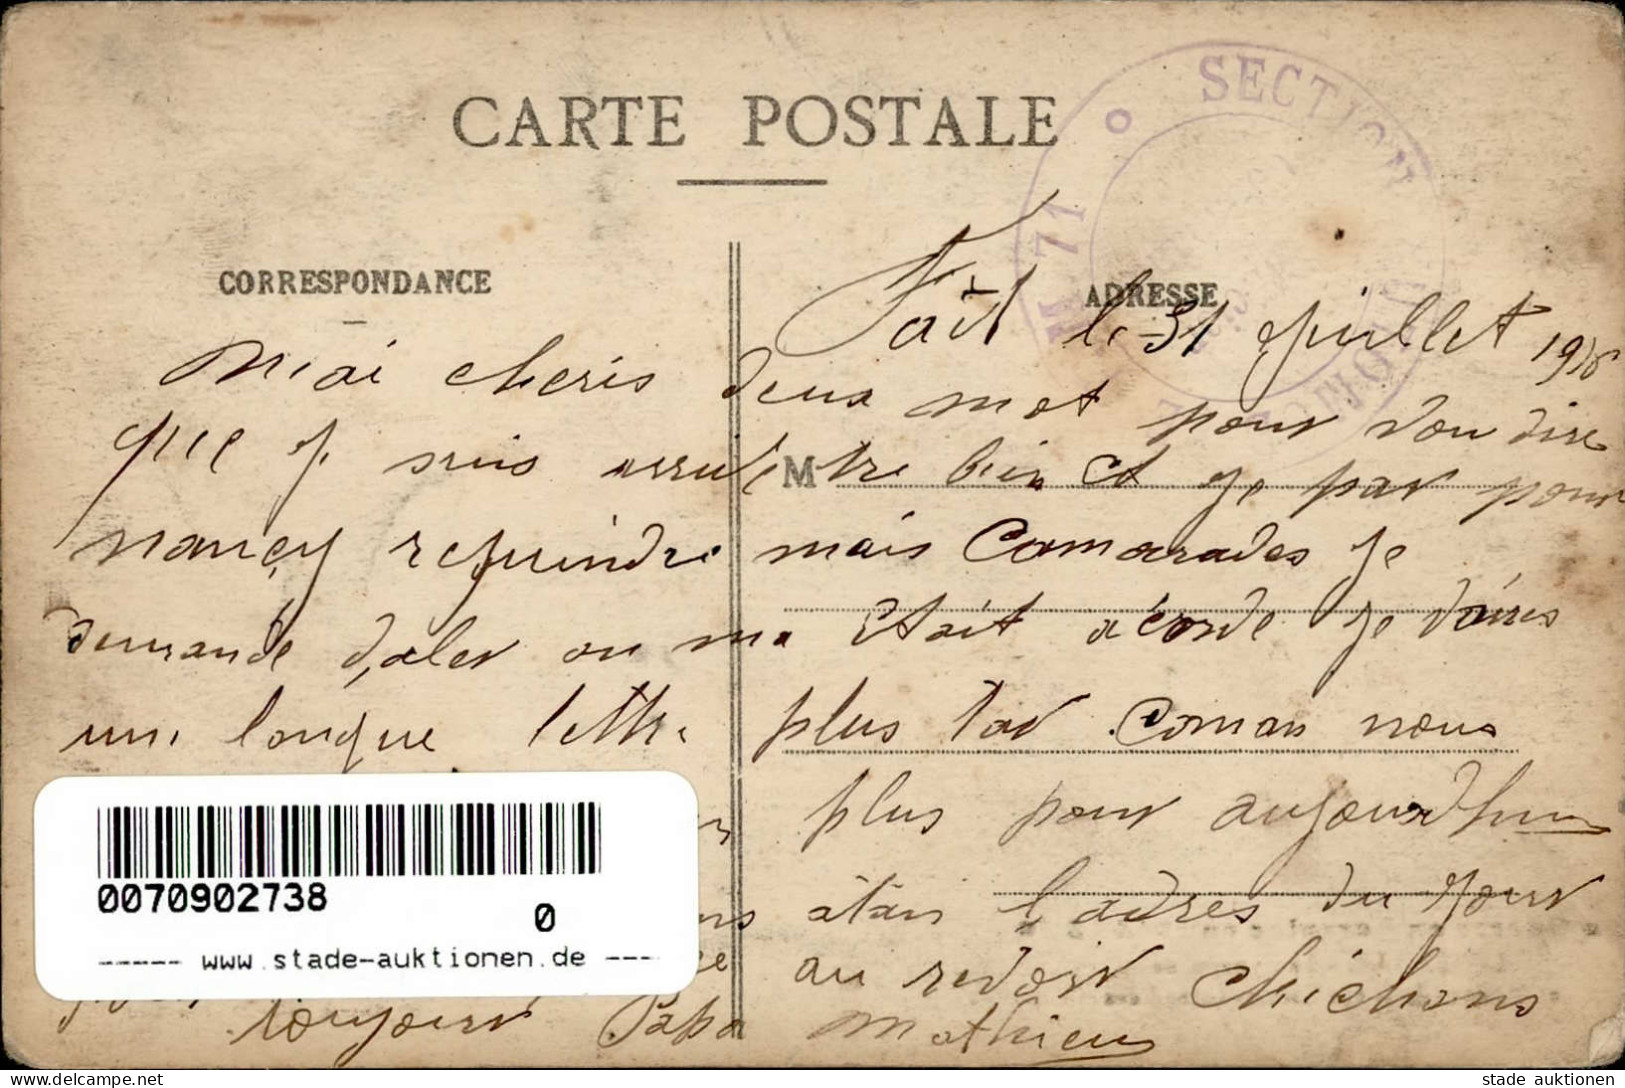 CARTE POSTALE
SECTION
T M 71
AUTOMOBILE
CORRESPONDANCE
ADRESSE
Fait le 31 Juillet 1918
Mai cheris deux mot pour vou dire
que J suis arrive tre bien et Je par pour
M
nancy rejuindre mais Camarades Je
demande d'aler on ma etait acorde Je
une longue lettre plus tar Coman nous
plus pour aujourdhui
atan l adres du Jour
au revoir Chichans
toujour Papa Mathieu
0070902738
0
----- www.stade-auktionen.de ---
stade auktionen